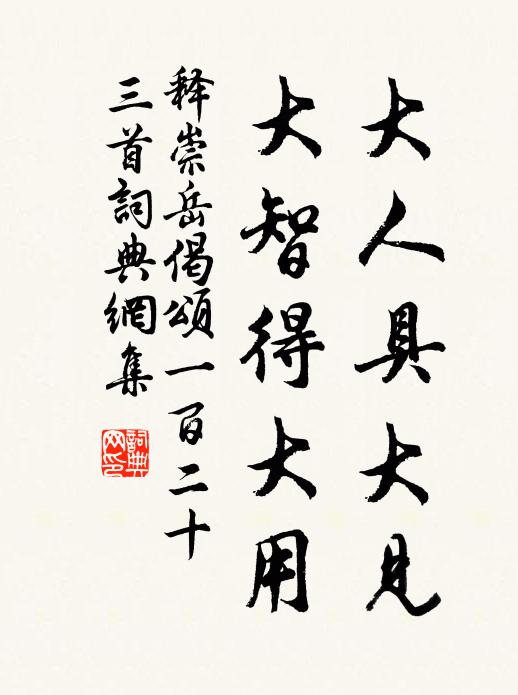 大人具大見
大智得大用
释崇岳偈頌一百二十
三首詞典網集
詞典网印